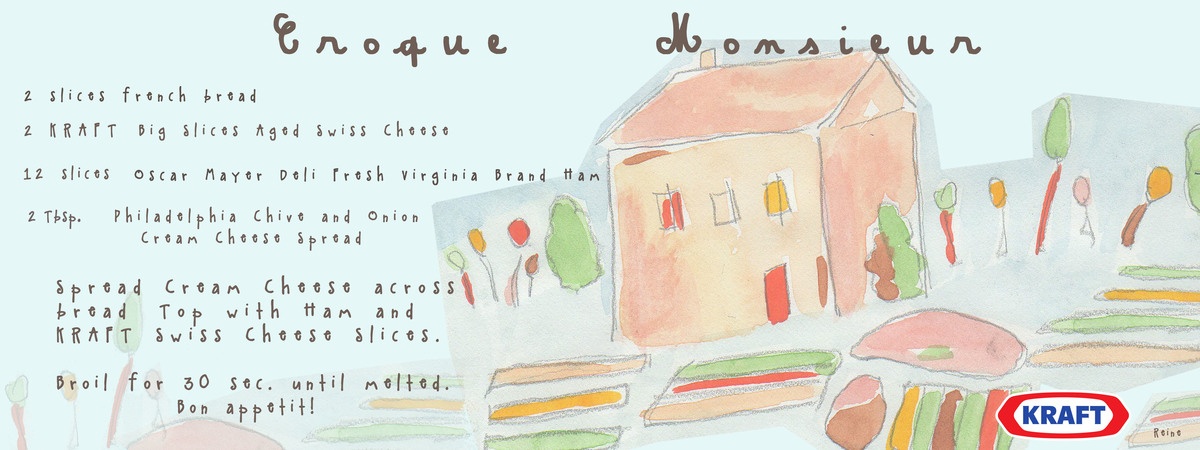 Croque Monsieur
2 slices french bread
2 KRAFT Big Slices Aged Swiss Cheese
12 slices Oscar Mayer Deli Fresh Virginia Brand Ham
2 Tbsp. Philadelphia Chive and Onion
Cream Cheese Spread
Spread Cream Cheese across
bread Top with Ham and
KRAFT Swiss Cheese Slices.
Broil for 30 sec. until melted.
Bon appetit!
KRAFT
Reine